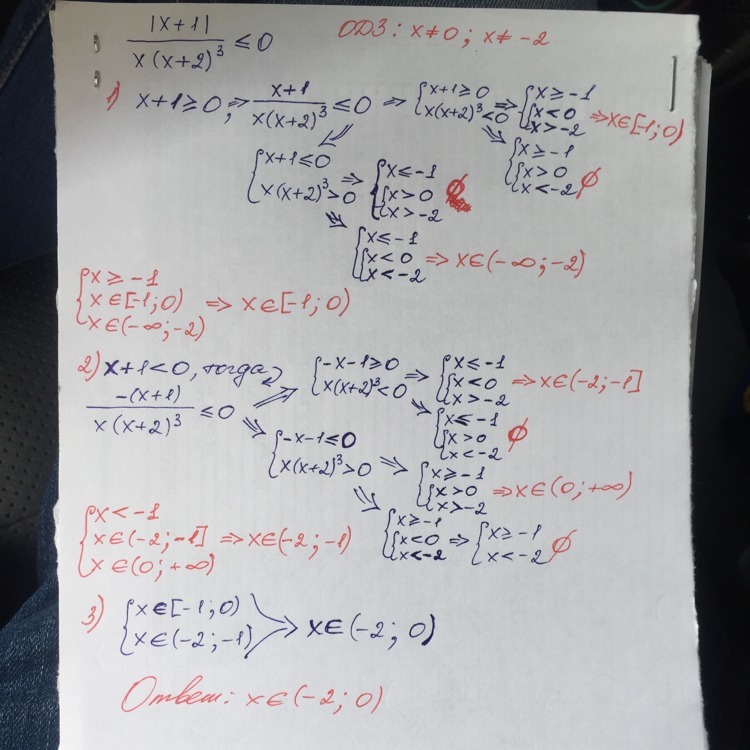 |x+1| / x(x+2)³ ≤ 0   ОДЗ: x≠0; x≠-2
1) x+1≥0, ⇒ x+1 / x(x+2)³ ≤ 0 ⇒ { x+1≥0 x(x+2)³<0 ⇒ { x≥-1 { x<0 x>-2 ⇒ x∈[-1; 0)
{ x≥-1 { x>0 x<-2 ∅
{ x+1≤0 x(x+2)³>0 ⇒ { x≤-1 { x>0 x>-2 ∅
{ x≤-1 { x<0 x<-2 ⇒ x∈(-∞; -2)
{ x≥-1
x∈[-1; 0) ⇒ x∈[-1; 0)
x∈(-∞; -2)
2) x+1<0, тогда
-(x+1) / x(x+2)³ ≤ 0 ⇒ { -x-1≥0 x(x+2)³<0 ⇒ { x≤-1 { x<0 x>-2 ⇒ x∈(-2; -1]
{ x≤-1 { x>0 x<-2 ∅
{ -x-1≤0 x(x+2)³>0 ⇒ { x≥-1 { x>0 x>-2 ⇒ x∈(0; +∞)
{ x≥-1 { x<0 x<-2 ⇒ { x≥-1 x<-2 ∅
{ x<-1
x∈(-2; -1] ⇒ x∈(-2; -1)
x∈(0; +∞)
3) { x∈[-1; 0)
x∈(-2; -1) > x∈(-2; 0)
Ответ: x∈(-2; 0)